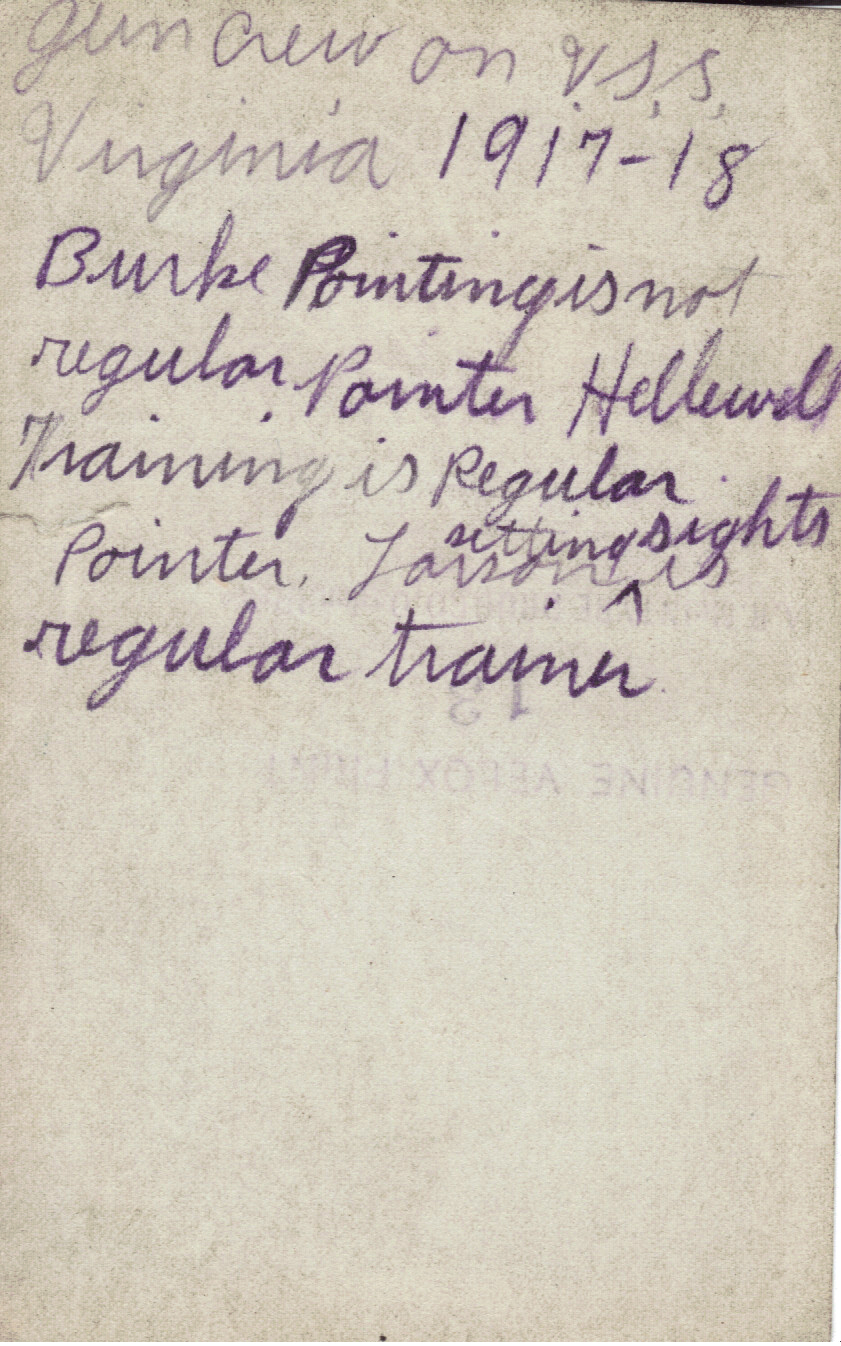 Gun Crew on U.S.S.
Virginia 1917-18
Burke Pointing is not
regular Pointer Hellewell
Training is Regular
setting sights
Pointer. Larson ^ is
regular trainer